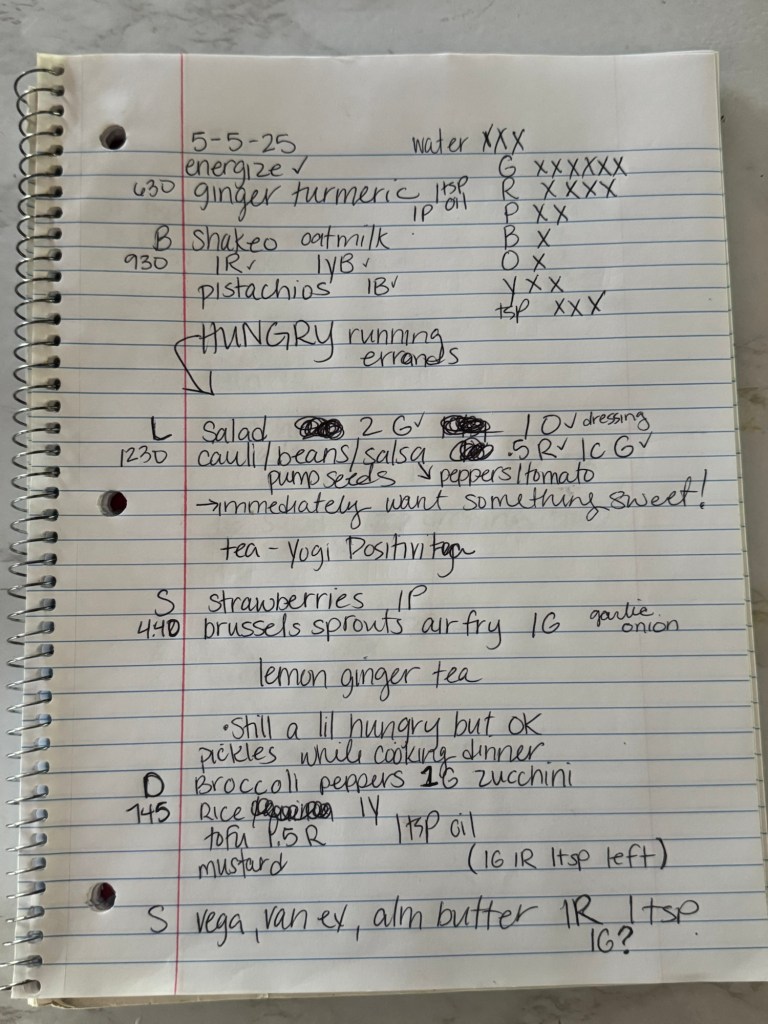 5-5-25 water XXX
energize ✓ G XXXXXX
630 ginger turmeric 1tsp oil R XXXX
1P P XX
B Shakeo oatmilk B X
930 1R✓ 1yB✓ O X
pistachios 1B✓ y XX
tsp XXX
HUNGRY running
errands
L Salad 2 G✓ 1 O✓ dressing
1230 cauli/beans/salsa .5 R✓ 1C G✓
pump seeds ↘ peppers/tomato
→immediately want something sweet!
tea - Yogi Positivitea
S strawberries 1P
4:40 brussels sprouts air fry 1G garlic onion
lemon ginger tea
•Still a lil hungry but OK
pickles while cooking dinner
D Broccoli peppers 1G zucchini
745 Rice 1Y
tofu 1.5 R 1tsp oil
mustard (1G 1R 1tsp left)
S vega, van ex, alm butter 1R 1tsp
1G?